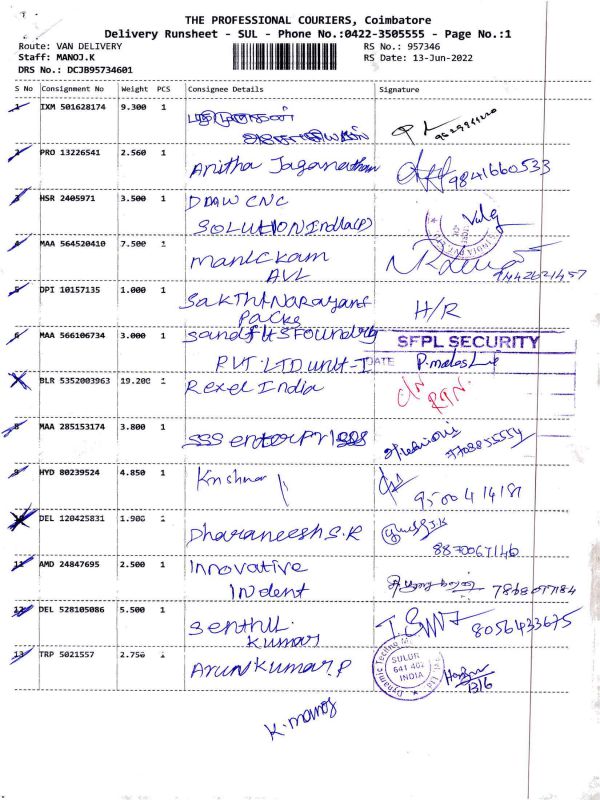 THE PROFESSIONAL COURIERS, Coimbatore
Delivery Runsheet - SUL - Phone No.:0422-3505555 - Page No.:1
Route: VAN DELIVERY
RS No.: 957346
Staff: MANOJ.K
RS Date: 13-Jun-2022
DRS No.: DCJB95734601
S No Consignment No Weight PCS Consignee Details Signature
1 IXM 501628174 9.300 1
2 PRO 13226541 2.560 1 Anitha Jaganathan 9841660533
3 HSR 2405971 3.500 1 DRAW CNC
SOLUTION India(P)
4 MAA 564520410 7.500 1 manickam
AVL 9442621457
5 DPI 10157135 1.000 1 Sakthi Narayana
Packe H/R
6 MAA 566106734 3.000 1 Sandfits Foundry
PVT. LTD unit-I
SFPL SECURITY
DATE
7 BLR 5352003963 19.200 1 Rexel India
RTN.
8 MAA 285153174 3.800 1 SSS enterprises 7708855554
9 HYD 80239524 4.850 1 Krishnan 9500414181
10 DEL 120425831 1.900 1 Dharaneesh S.R
8870067146
11 AMD 24847695 2.500 1 Innovative
Indent 7868077184
12 DEL 528105086 5.500 1 Senthil
Kumar 8056433675
13 TRP 5021557 2.750 1 Arunkumar.P
SULUR
641 402
INDIA
13/6
K. manoj